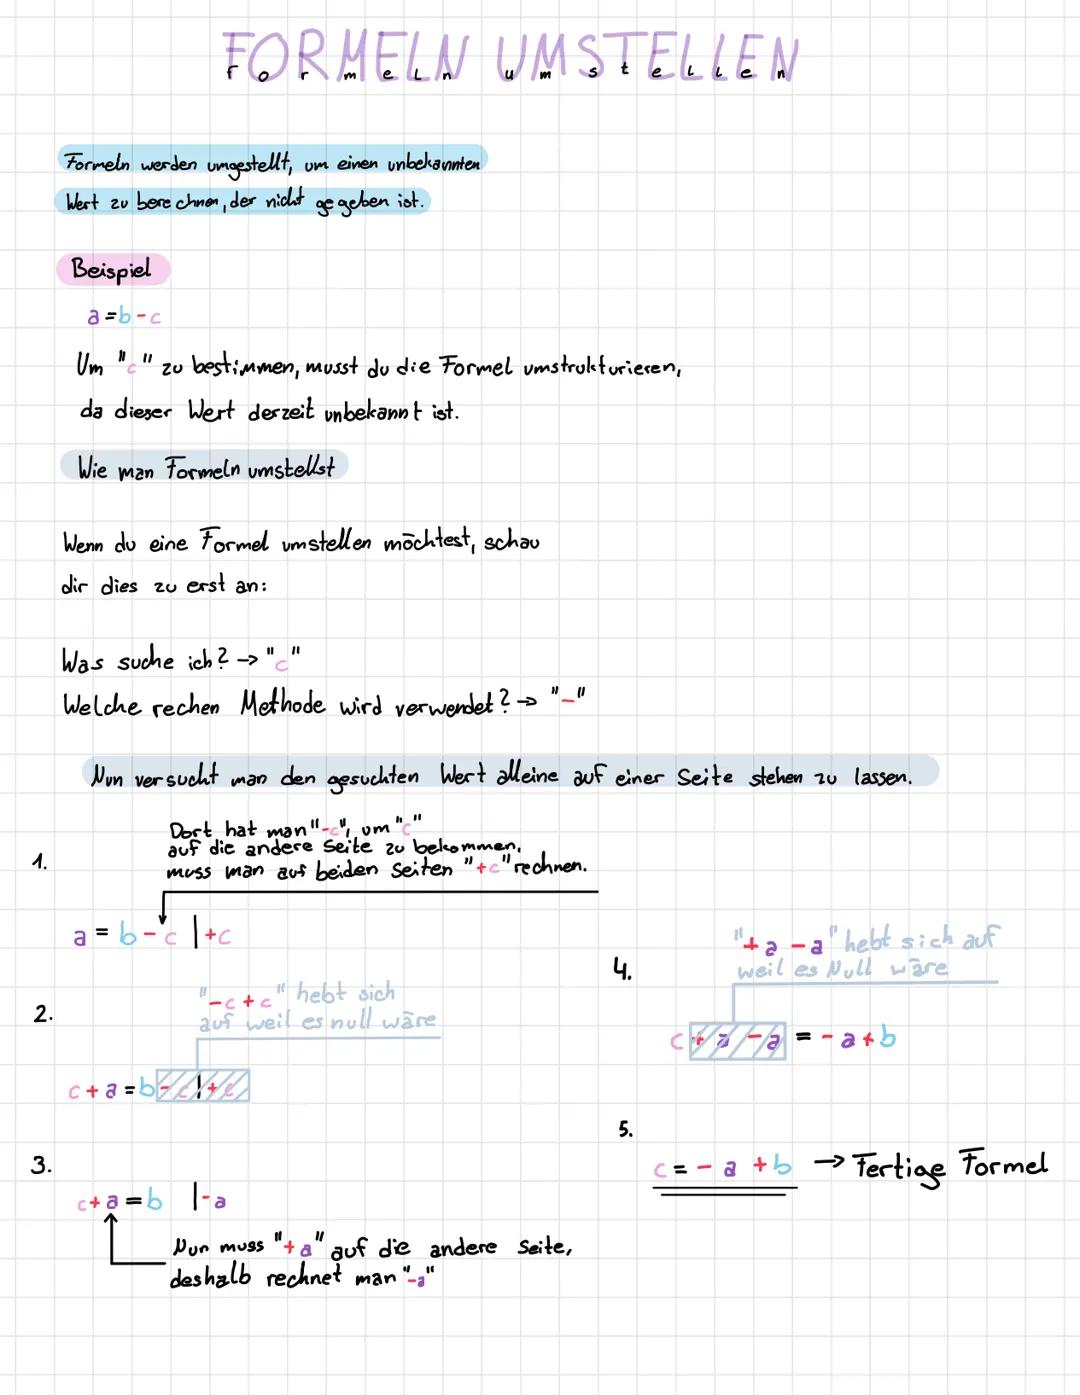 FORMELN UMSTELLEN
formeln umstellen
Formeln werden umgestellt, um einen unbekannten
Wert zu berechnen, der nicht gegeben ist.
Beispiel
a = b - c
Um "c" zu bestimmen, musst du die Formel umstrukturieren,
da dieser Wert derzeit unbekannt ist.
Wie man Formeln umstellst
Wenn du eine Formel umstellen möchtest, schau
dir dies zu erst an:
Was suche ich? → "c"
Welche rechen Methode wird verwendet? → "-"
Nun versucht man den gesuchten Wert alleine auf einer Seite stehen zu lassen.
1.
Dort hat man "-c", um "c"
auf die andere Seite zu bekommen,
muss man auf beiden Seiten "+c" rechnen.
a = b - c | +c
2.
"-c +c" hebt sich
auf weil es null wäre
c + a = b - c | + c
3.
c + a = b | - a
Nun muss "+a" auf die andere Seite,
deshalb rechnet man "-a"
4.
"+ a - a" hebt sich auf
weil es Null wäre
c + a - a = - a + b
5.
c = - a + b → Fertige Formel